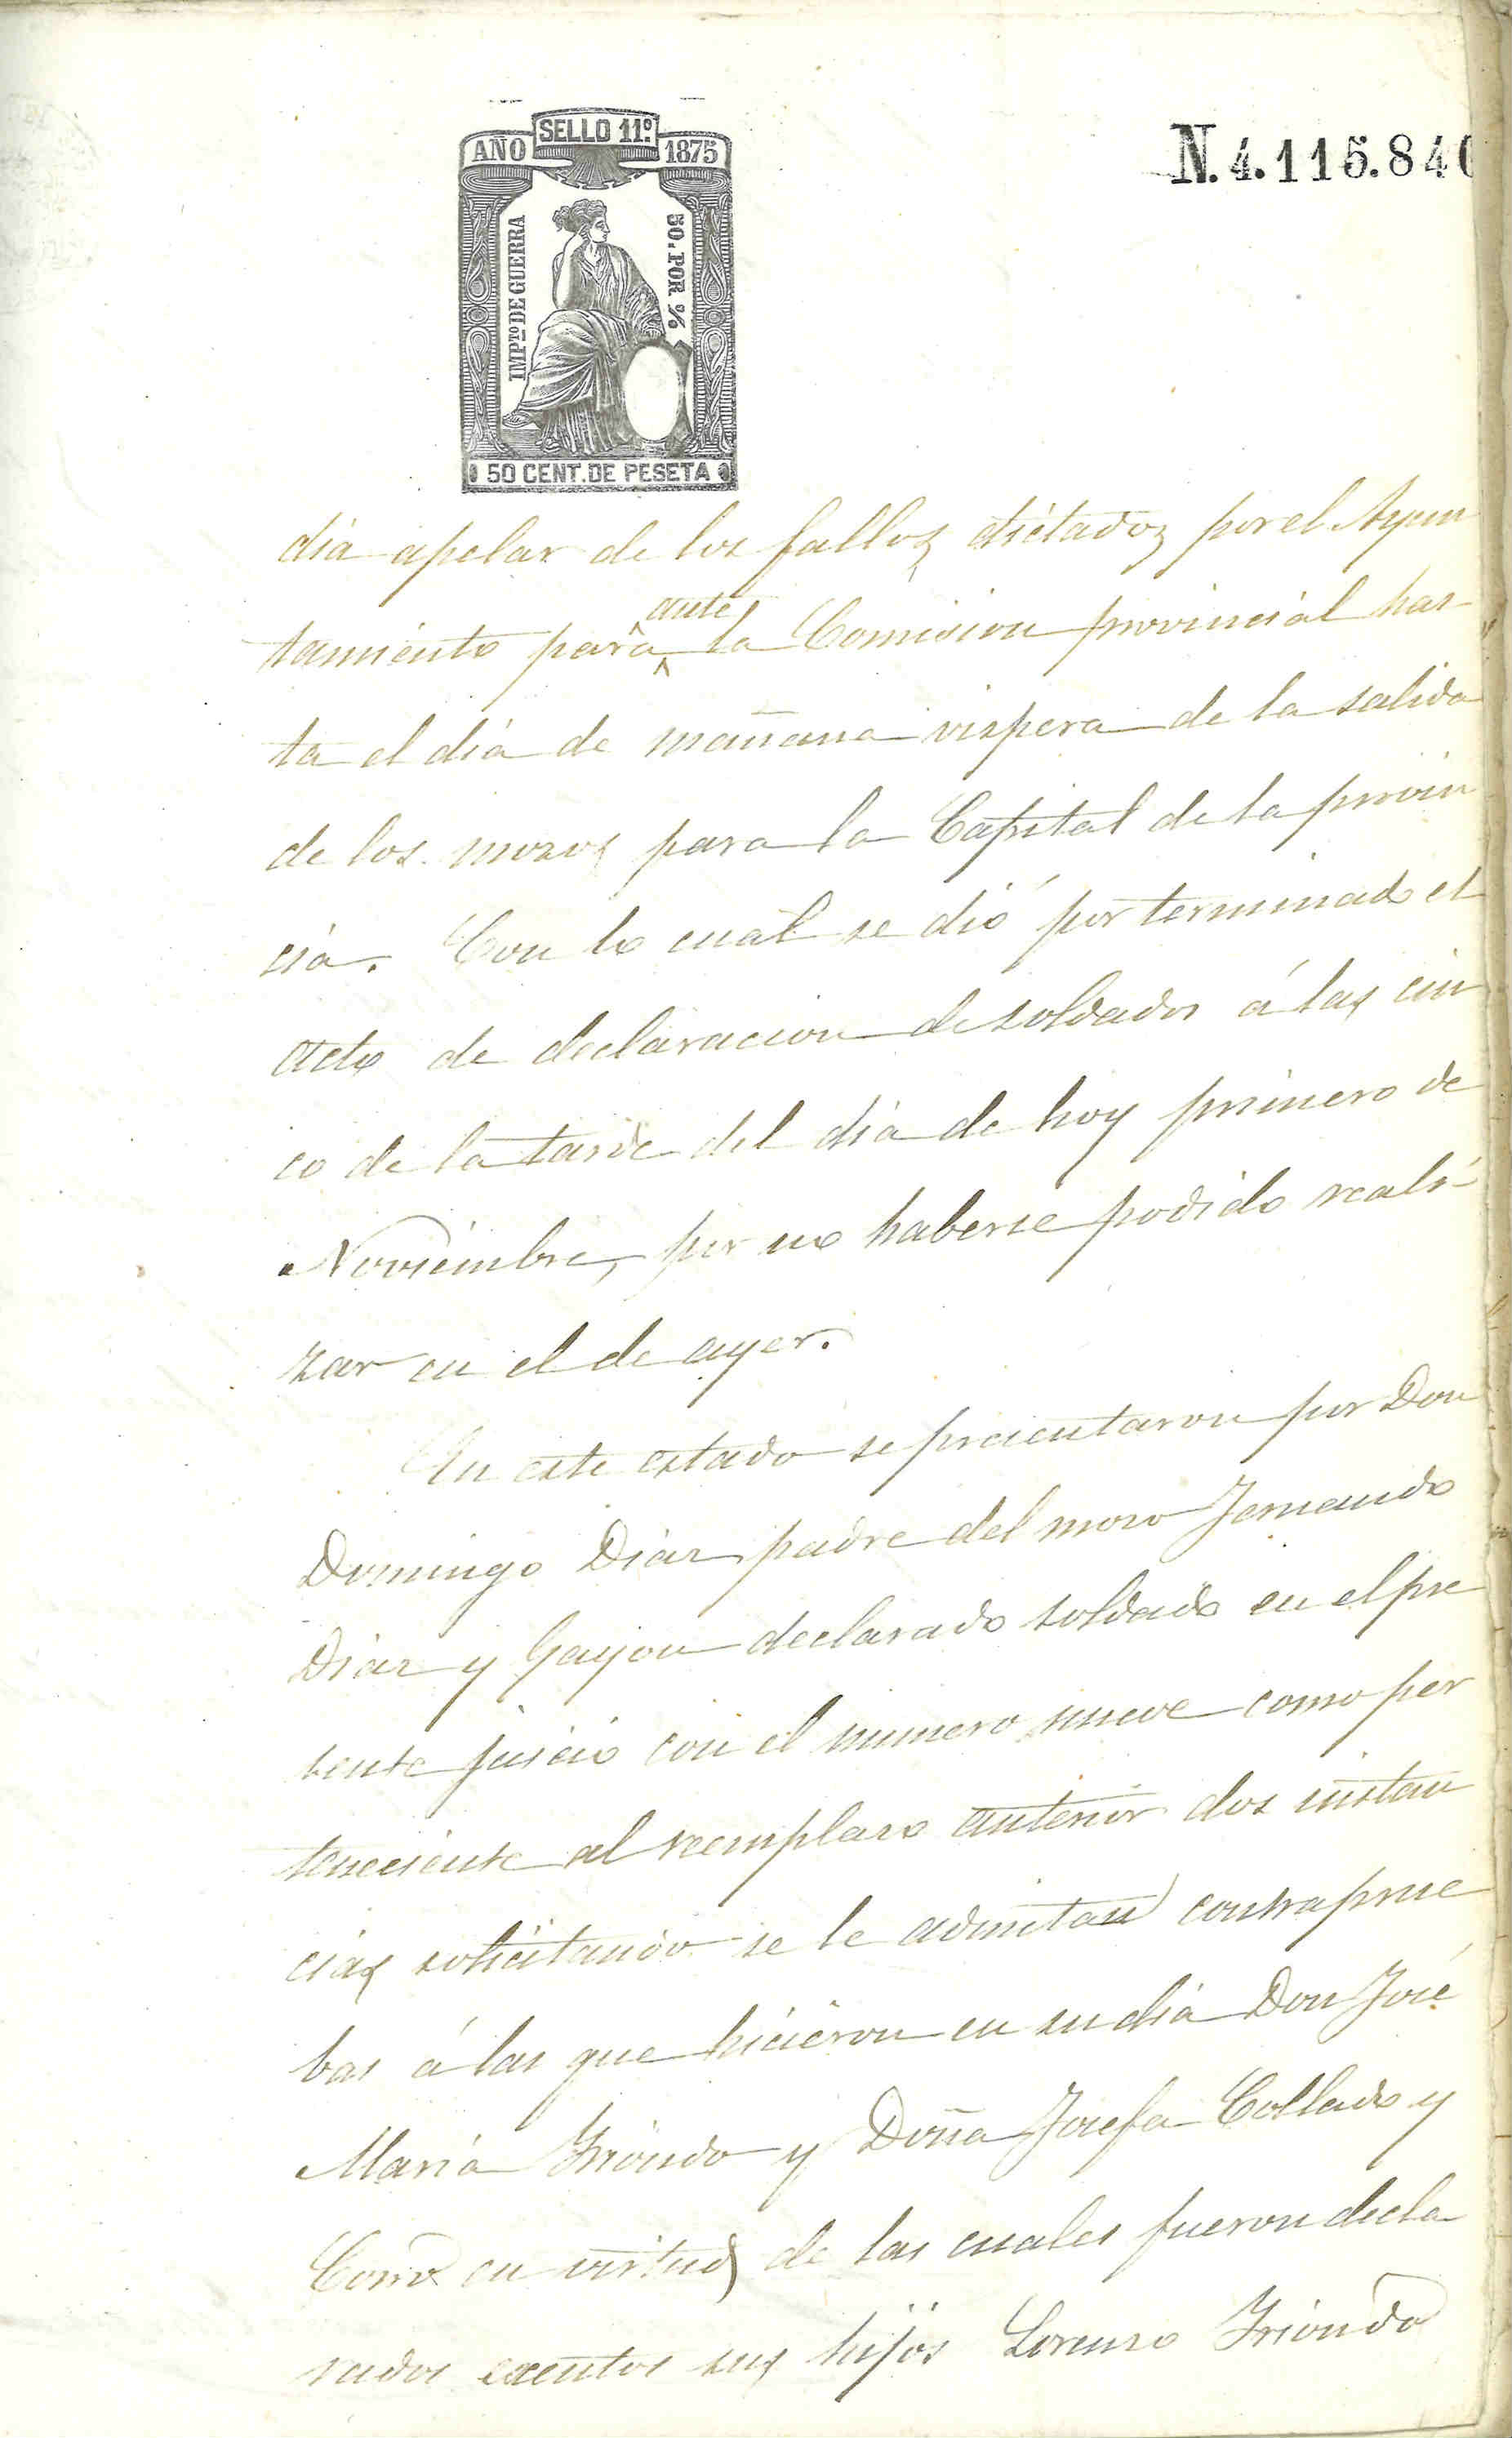 SELLO 11º
AÑO 1875
IMPTO DE GUERRA
50. POR %
50 CENT. DE PESETA
N. 4.115.840
dia apelar de los fallos dictados por el Ayun
tamiento para ante la Comision provincial has-
ta el dia de mañana vispera de la salida
de los mozos para la Capital de la provin
cia. Con lo cual se dió por terminado el
acto de declaracion de soldados á las cin
co de la tarde del dia de hoy primero de
Noviembre, por no haberse podido reali-
zar en el de ayer.
En este estado se presentaron por Don
Domingo Diaz padre del mozo Fernando
Diaz y Gayon declarado soldado en el pre
sente juicio con el numero nueve como per
teneciente al reemplazo anterior dos instan
cias solicitando se le admitan contraprue
bas á las que hicieron en su dia Don José
Maria Iriondo y Doña Josefa Collado y
en virtud de las cuales fueron decla
rados exentos sus hijos Lorenzo Iriondo